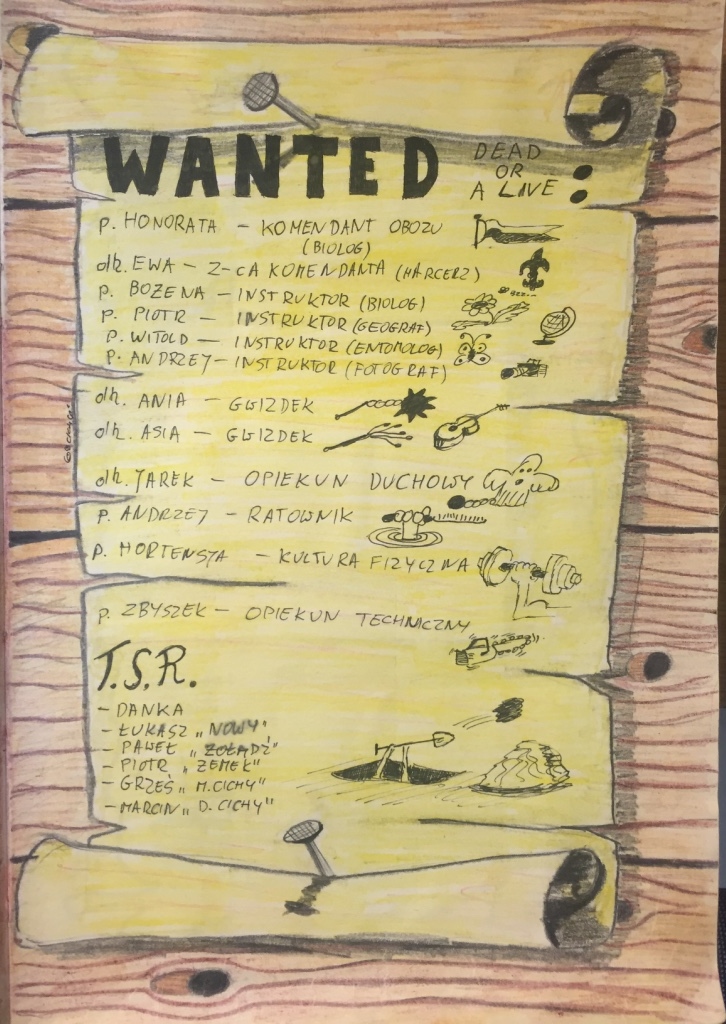 WANTED DEAD OR A LIVE :
p. HONORATA – KOMENDANT OBOZU
(BIOLOG)
dh. EWA – Z-CA KOMENDANTA (HARCERZ)
p. BOŻENA – INSTRUKTOR (BIOLOG)
p. PIOTR – INSTRUKTOR (GEOGRAF)
p. WITOLD – INSTRUKTOR (ENTOMOLOG)
p. ANDRZEJ – INSTRUKTOR (FOTOGRAF)
dh. ANIA – GWIZDEK
dh. ASIA – GWIZDEK
dh. JAREK – OPIEKUN DUCHOWY
p. ANDRZEJ – RATOWNIK
p. HORTENSJA – KULTURA FIZYCZNA
p. ZBYSZEK – OPIEKUN TECHNICZNY
T.S.R.
– DANKA
– ŁUKASZ „NOWY"
– PAWEŁ „ŻOŁĄDŹ"
– PIOTR „ZEMEK"
– GRZEŚ „M.CICHY"
– MARCIN „D. CICHY"